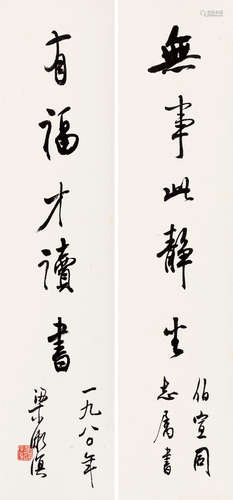 無事此靜坐
伯宣同
志屬書
有福才讀書
一九八〇年
梁